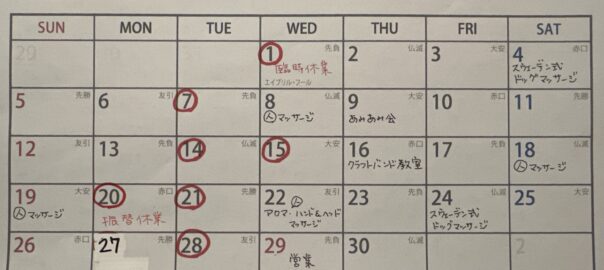 SUN MON TUE WED THU FRI SAT
29 1 先負 2 仏滅 3 大安 4 赤口
臨時休業
エイプリル・フール
スウェーデン式
ドッグマッサージ
5 先勝 6 友引 7 先負 8 仏滅 9 大安 10 赤口 11 先勝
人マッサージ あみあみ会
12 友引 13 先負 14 仏滅 15 大安 16 赤口 17 先負 18 仏滅
クラフトバンド教室 人マッサージ
19 大安 20 赤口 21 先勝 22 友引 23 先負 24 仏滅 25 大安
人マッサージ
振替休業
人
アロマ・ハンド&ヘッド
マッサージ
スウェーデン式
ドッグマッサージ
26 赤口 27 先勝 28 友引 29 先負 30 仏滅 2
営業